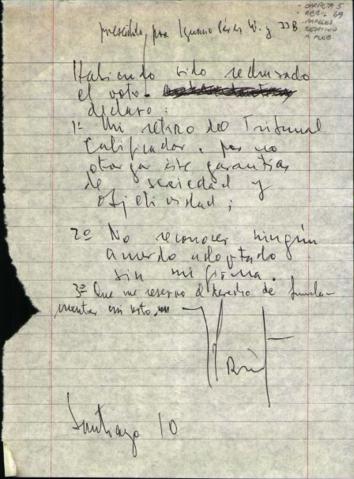 CARPETA 5
presidida por Ignacio Pérez W. y JJB
Habiendo sido rechazado
el voto.
declaro:
1º Mi retiro del Tribunal
Calificador, por no
otorgar éste garantías
de seriedad y
objetividad;
2º No reconocer ningún
acuerdo adoptado
sin mi firma.
3º Que me reservo el derecho de funda-
mentar mi voto.
Santiago 10